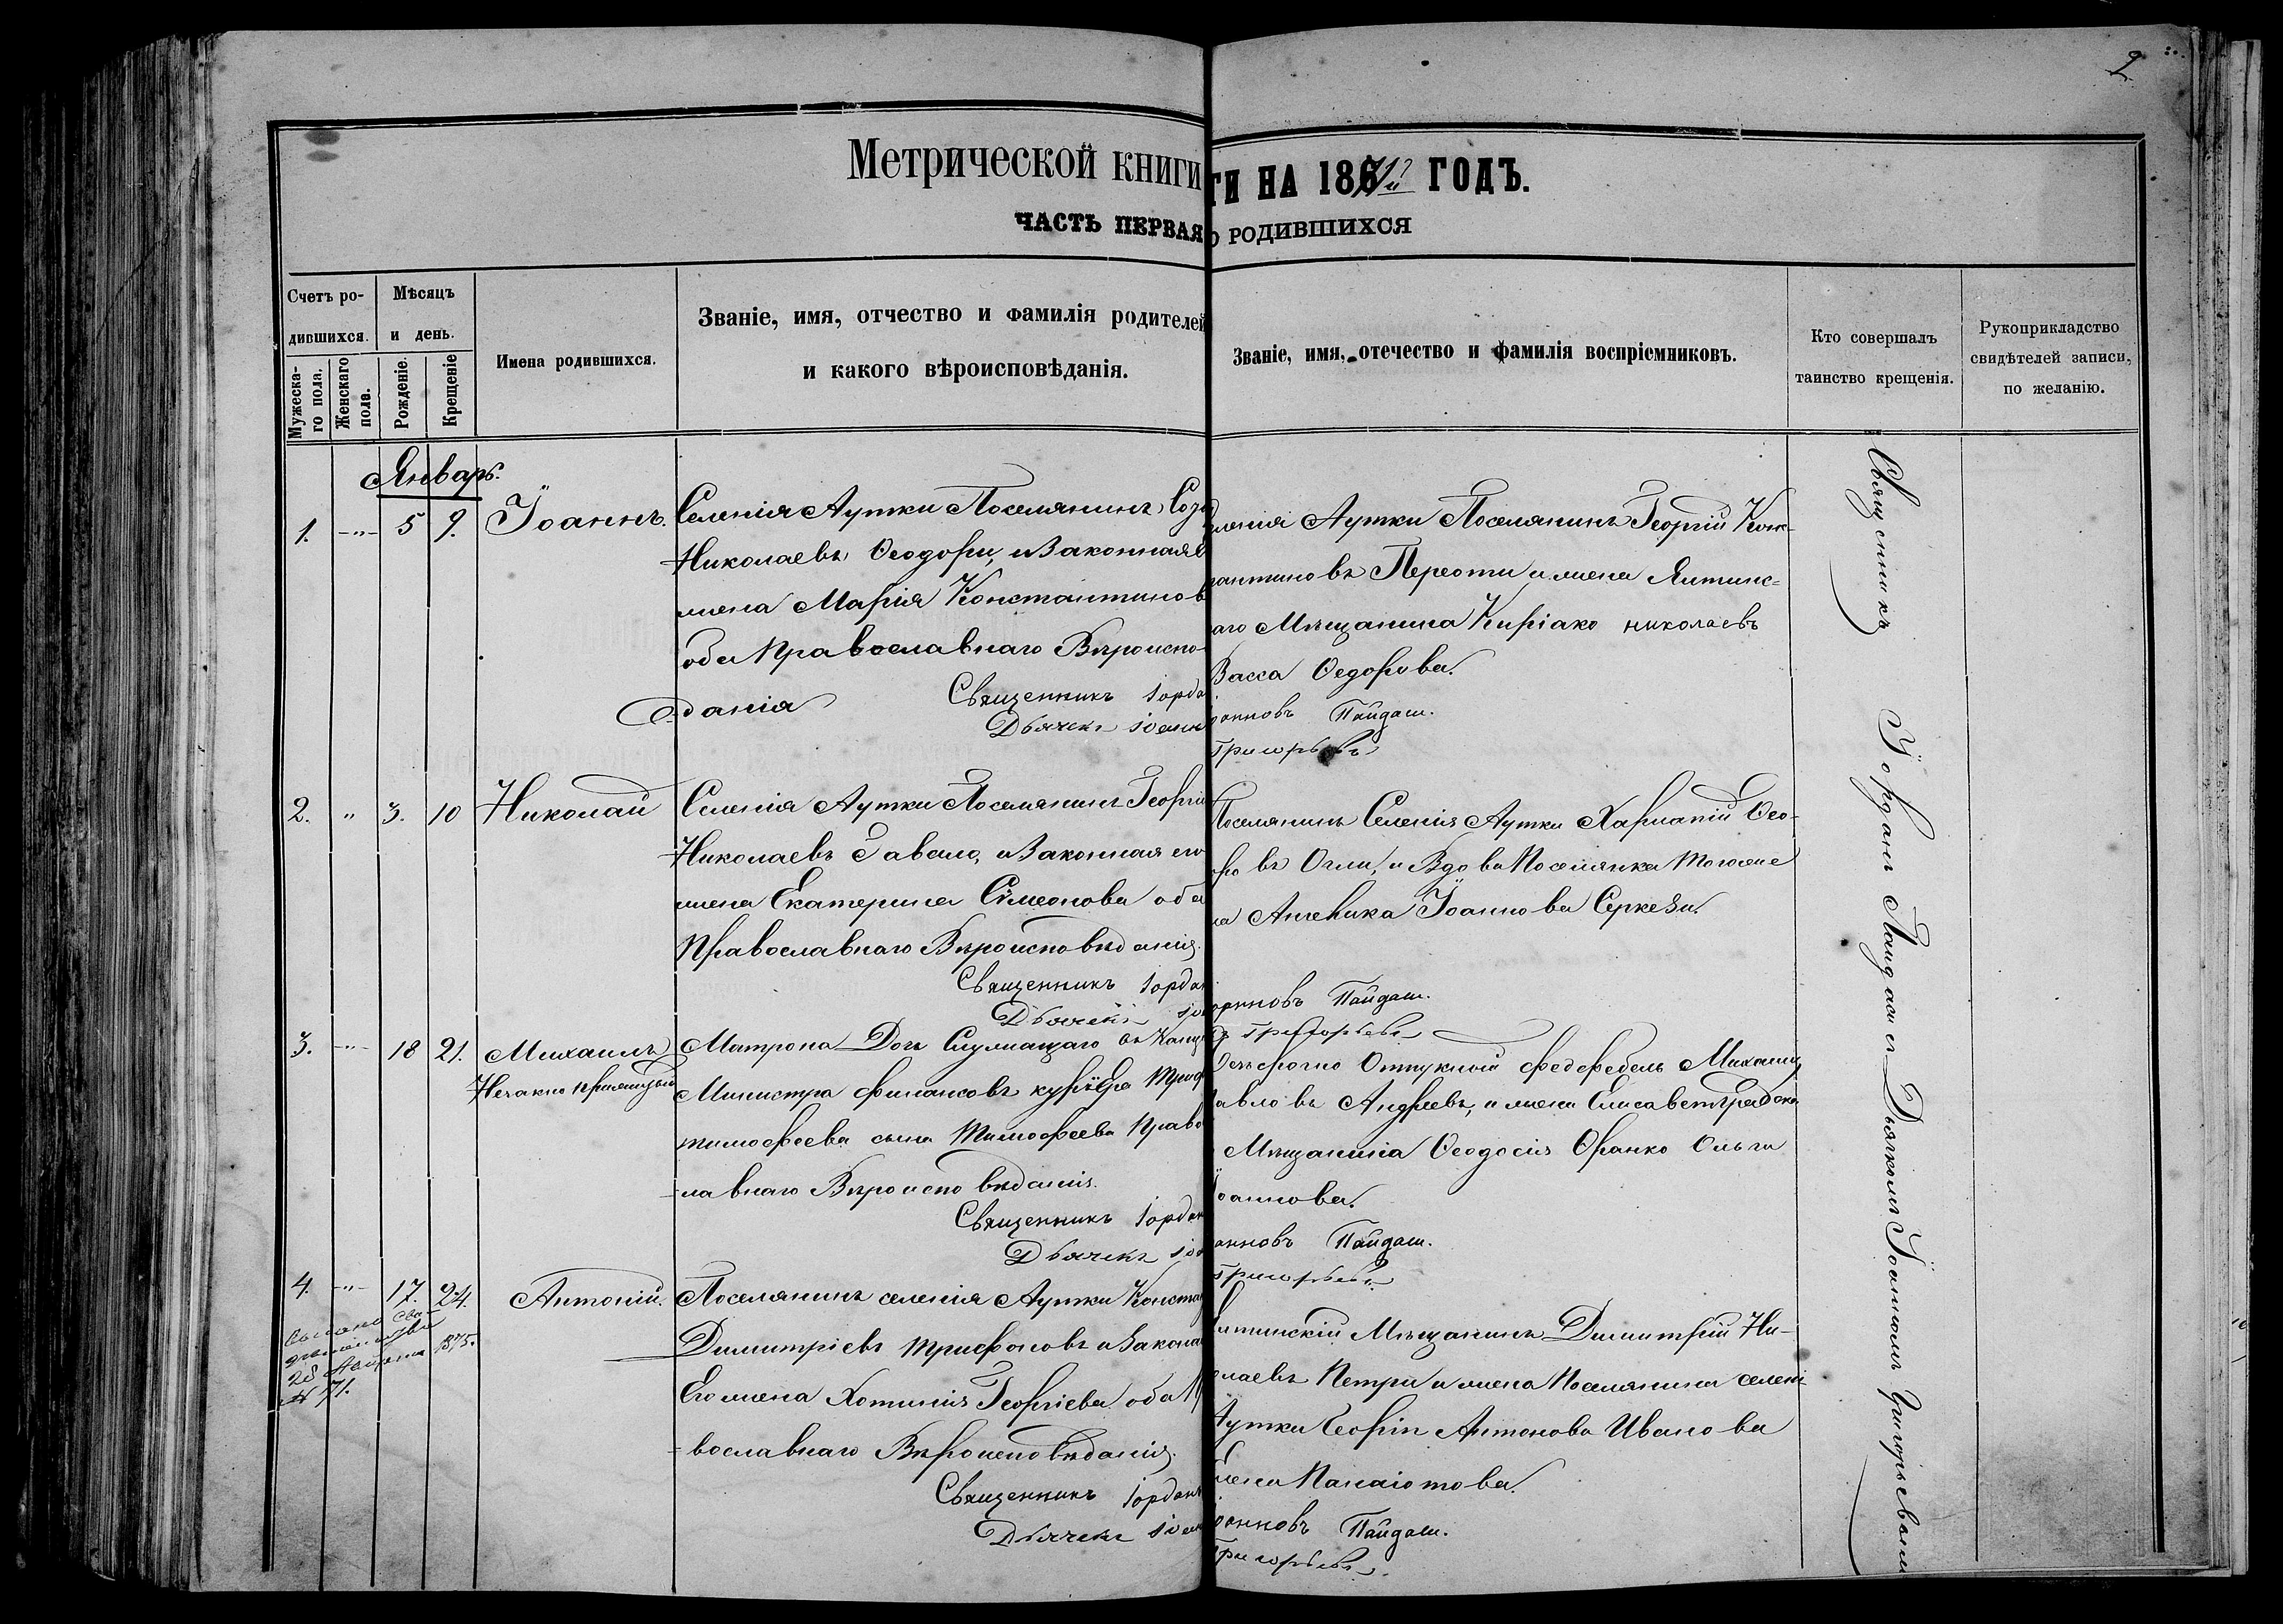 2
Метрической книги
ТИ НА 1871й ГОДЪ.
ЧАСТЬ ПЕРВАЯ
О РОДИВШИХСЯ
Счетъ ро-
дившихся.
Мужеска-
го пола.
Женскаго
пола.
Мѣсяцъ
и день.
Рожденіе.
Крещеніе
Имена родившихся.
Званіе, имя, отчество и фамилія родителей
и какого вѣроисповѣданія.
Званіе, имя, отечество и фамилія воспріемниковъ.
Кто совершалъ
таинство крещенія.
Рукоприкладство
свидѣтелей записи,
по желанію.
Январь.
1. -"- 5 9. Іоаннъ.
Селенія Аутки Поселянинъ Соз
Николаевъ Ѳеодори, и Законная е
жена Марія Константинов
оба Православнаго Вѣроиспо-
данія
Священникъ Іорда
Дьячекъ Іоанн
еленія Аутки Поселянинъ Георгій Кон-
тантиновъ Переоти и жена Ялтинс-
аго Мѣщанина Киріако николаевъ
Васса Ѳедорова.
анновъ Пайдаш.
Григорьевъ
2. " 3. 10 Николай
Селенія Аутки Поселянинъ Георгі
Николаевъ Гавало, и Законная его
жена Екатерина Симеонова оба
Православнаго Вѣроисповѣданія.
Священникъ Іордан
Дьячекъ Іо
Поселянинъ Селенія Аутки Харлапій Ѳео-
ро въ Огли, и Вдова Поселянка тогоже
ла Ангелика Іоаннова Серкези.
анновъ Пайдаш.
Григорьевъ
3. -"- 18 21. Михаилъ
Матрона Дочь Служащаго въ Канц
Министра финансовъ курьера Триф
тимофеева сына Тимофеева Право
лавнаго Вѣроисповѣданія.
Священникъ Іордан
Дьячекъ Іоа
Безсрочно Отпускной фелдфебель Михаилъ
авловъ Андреевъ, и жена Елисаветград
Мѣщанина Ѳеодосія Франко Ольга
Іоаннова.
анновъ Пайдаш.
Григорьевъ
4. -"- 17. 24. Антоній.
1875.
№ 71.
Поселянинъ селенія Аутки Конста
Димитріевъ Трифоновъ и Закона
Его жена Хотинія Георгіева оба П
вославнаго Вѣроисповѣданія.
Священникъ Іордан
Дьячекъ Іоан
лтинскій Мѣщанинъ Димитрій Ни-
олаевъ Петри и жена Поселянина селен
Аутки Георгія Антонова Иванова
Елена Панаіотова.
анновъ Пайдаш.
Григорьевъ
Священникъ Іорданъ Пайдаш съ Дьячкомъ Іоанномъ Григорьевымъ